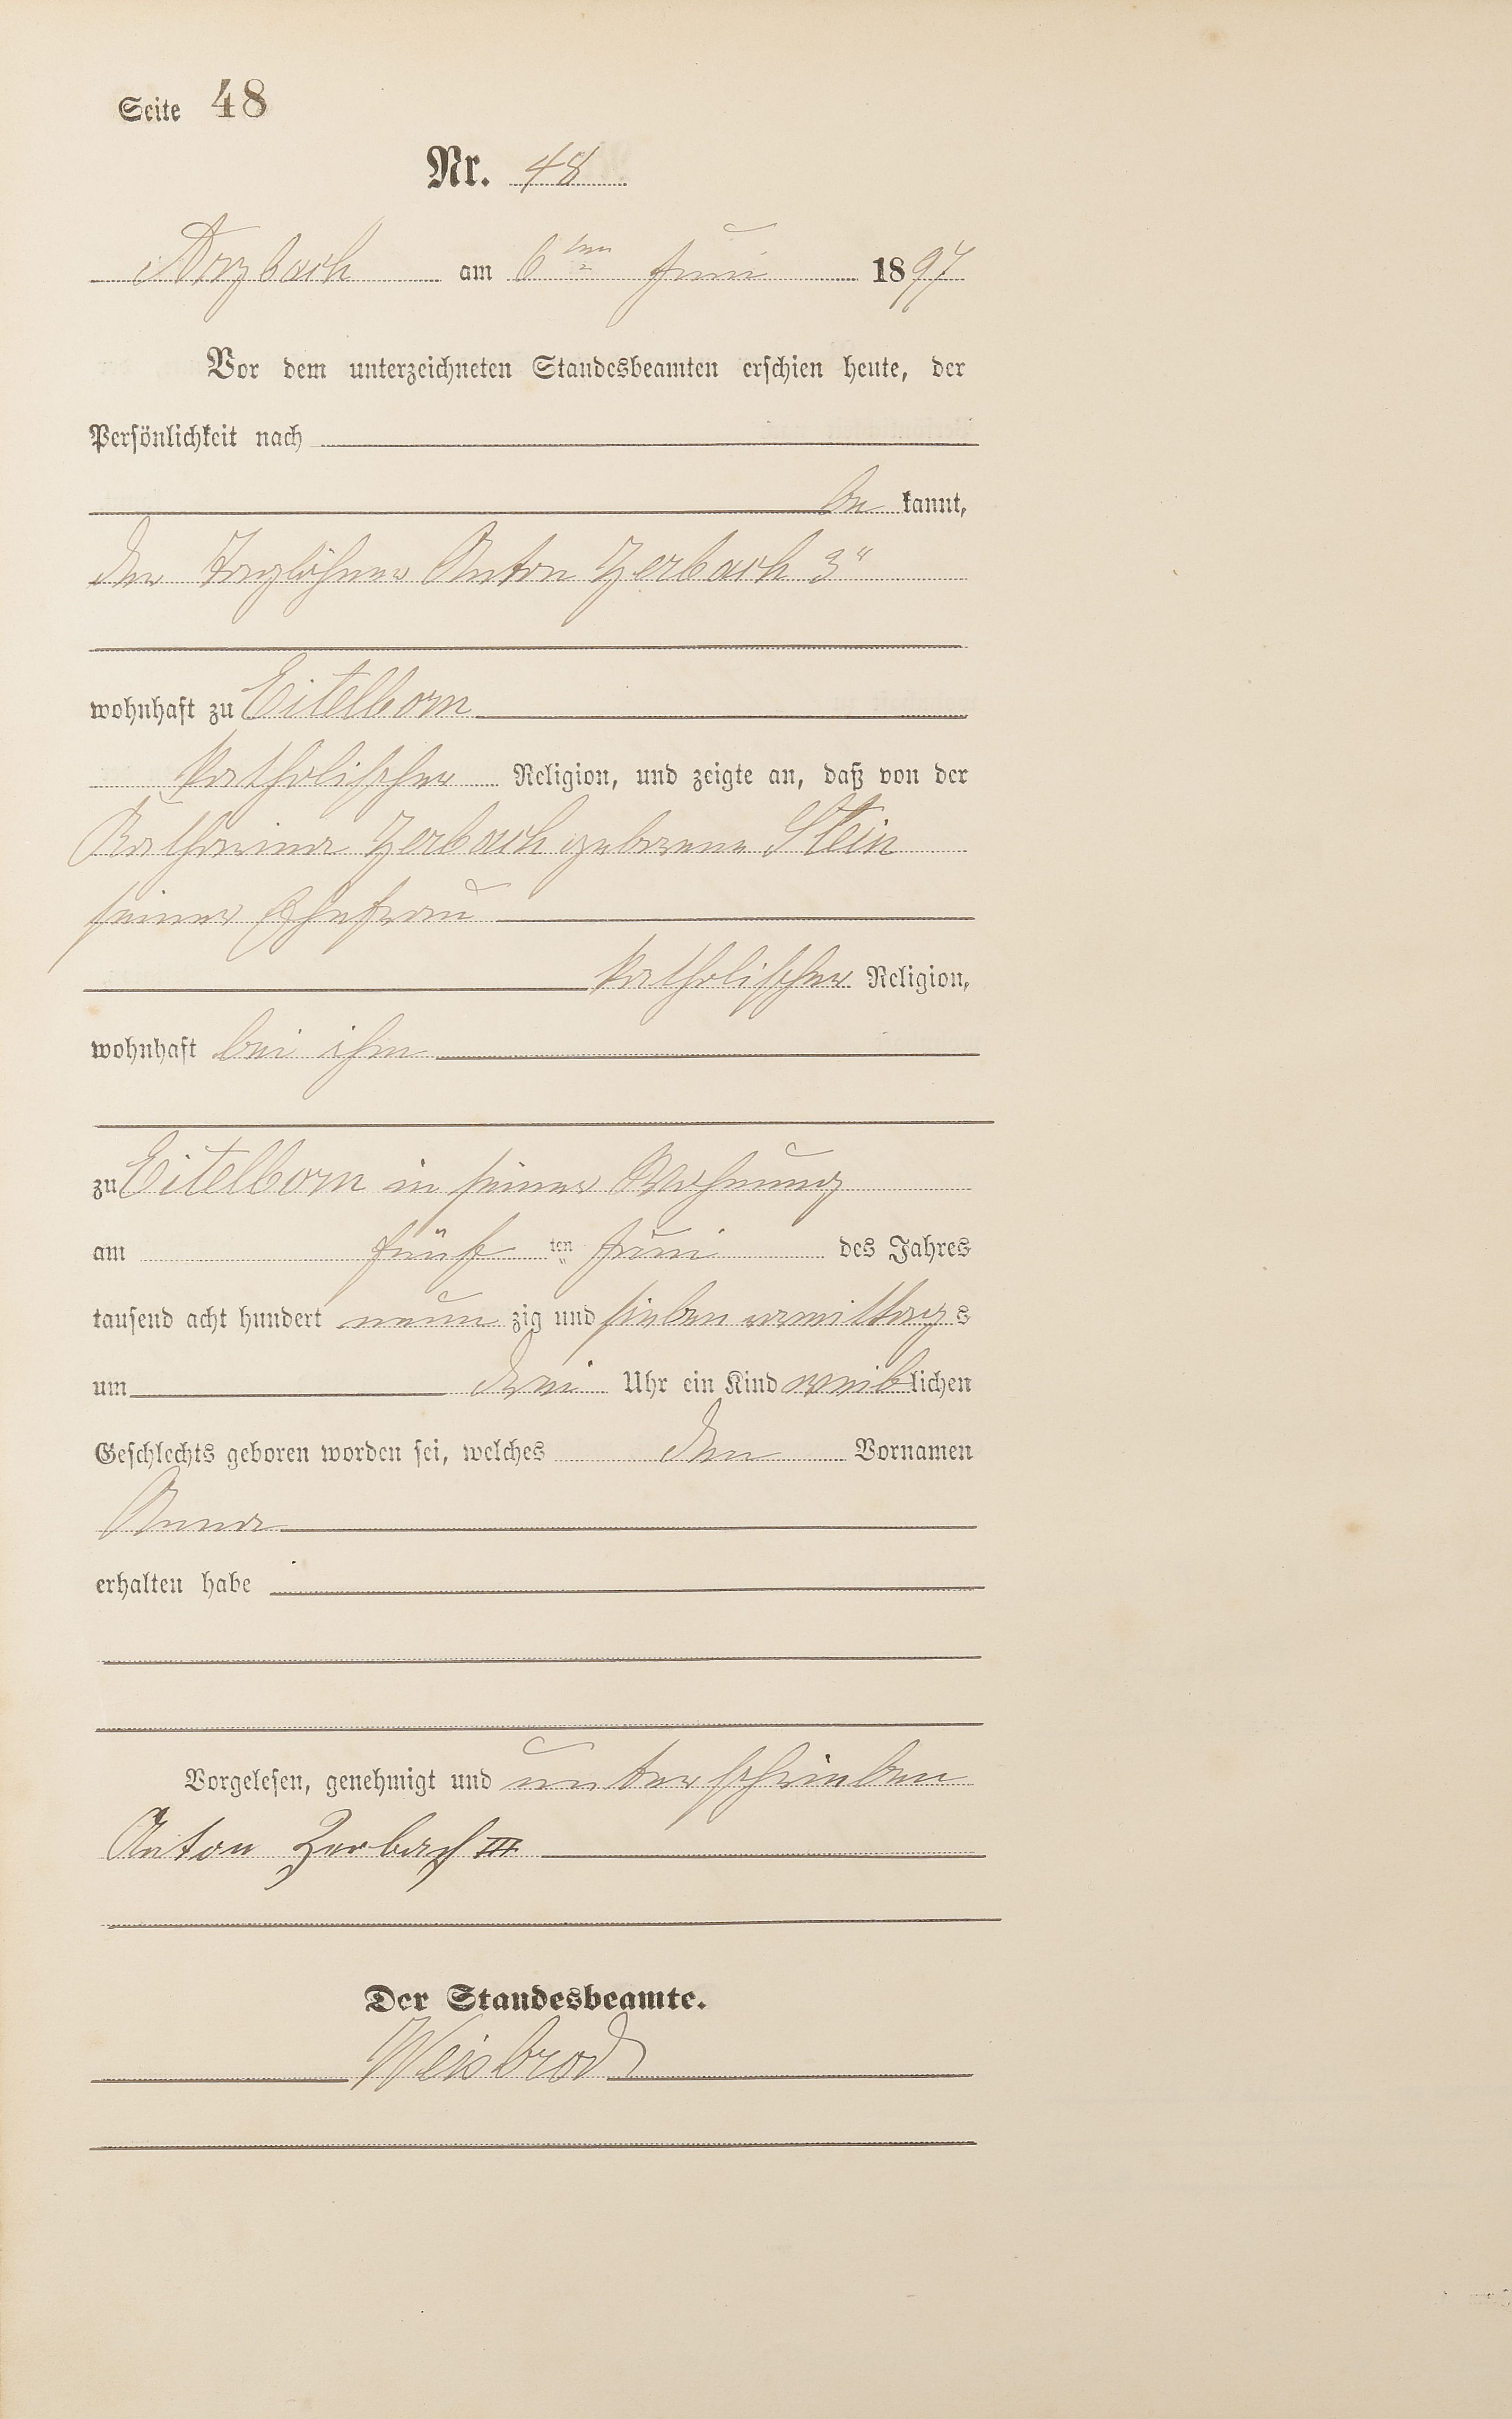 Seite 48
Nr. 48
Arzbach am 6ten Juni 1897
Vor dem unterzeichneten Standesbeamten erschien heute, der
Persönlichkeit nach
be kannt,
der Taglöhner Anton Zerbach 3"
wohnhaft zu Eitelborn
katholischer Religion, und zeigte an, daß von der
Katharina Zerbach geborene Stein
seiner Ehefrau
katholischer Religion,
wohnhaft bei ihm
zu Eitelborn in seiner Wohnung
am fünf ten Juni des Jahres
tausend acht hundert neun zig und sieben vormittags
um drei Uhr ein Kind weiblichen
Geschlechts geboren worden sei, welches den Vornamen
Anna
erhalten habe
Vorgelesen, genehmigt und unterschrieben
Anton Zerbach III
Der Standesbeamte.
Weisbrod